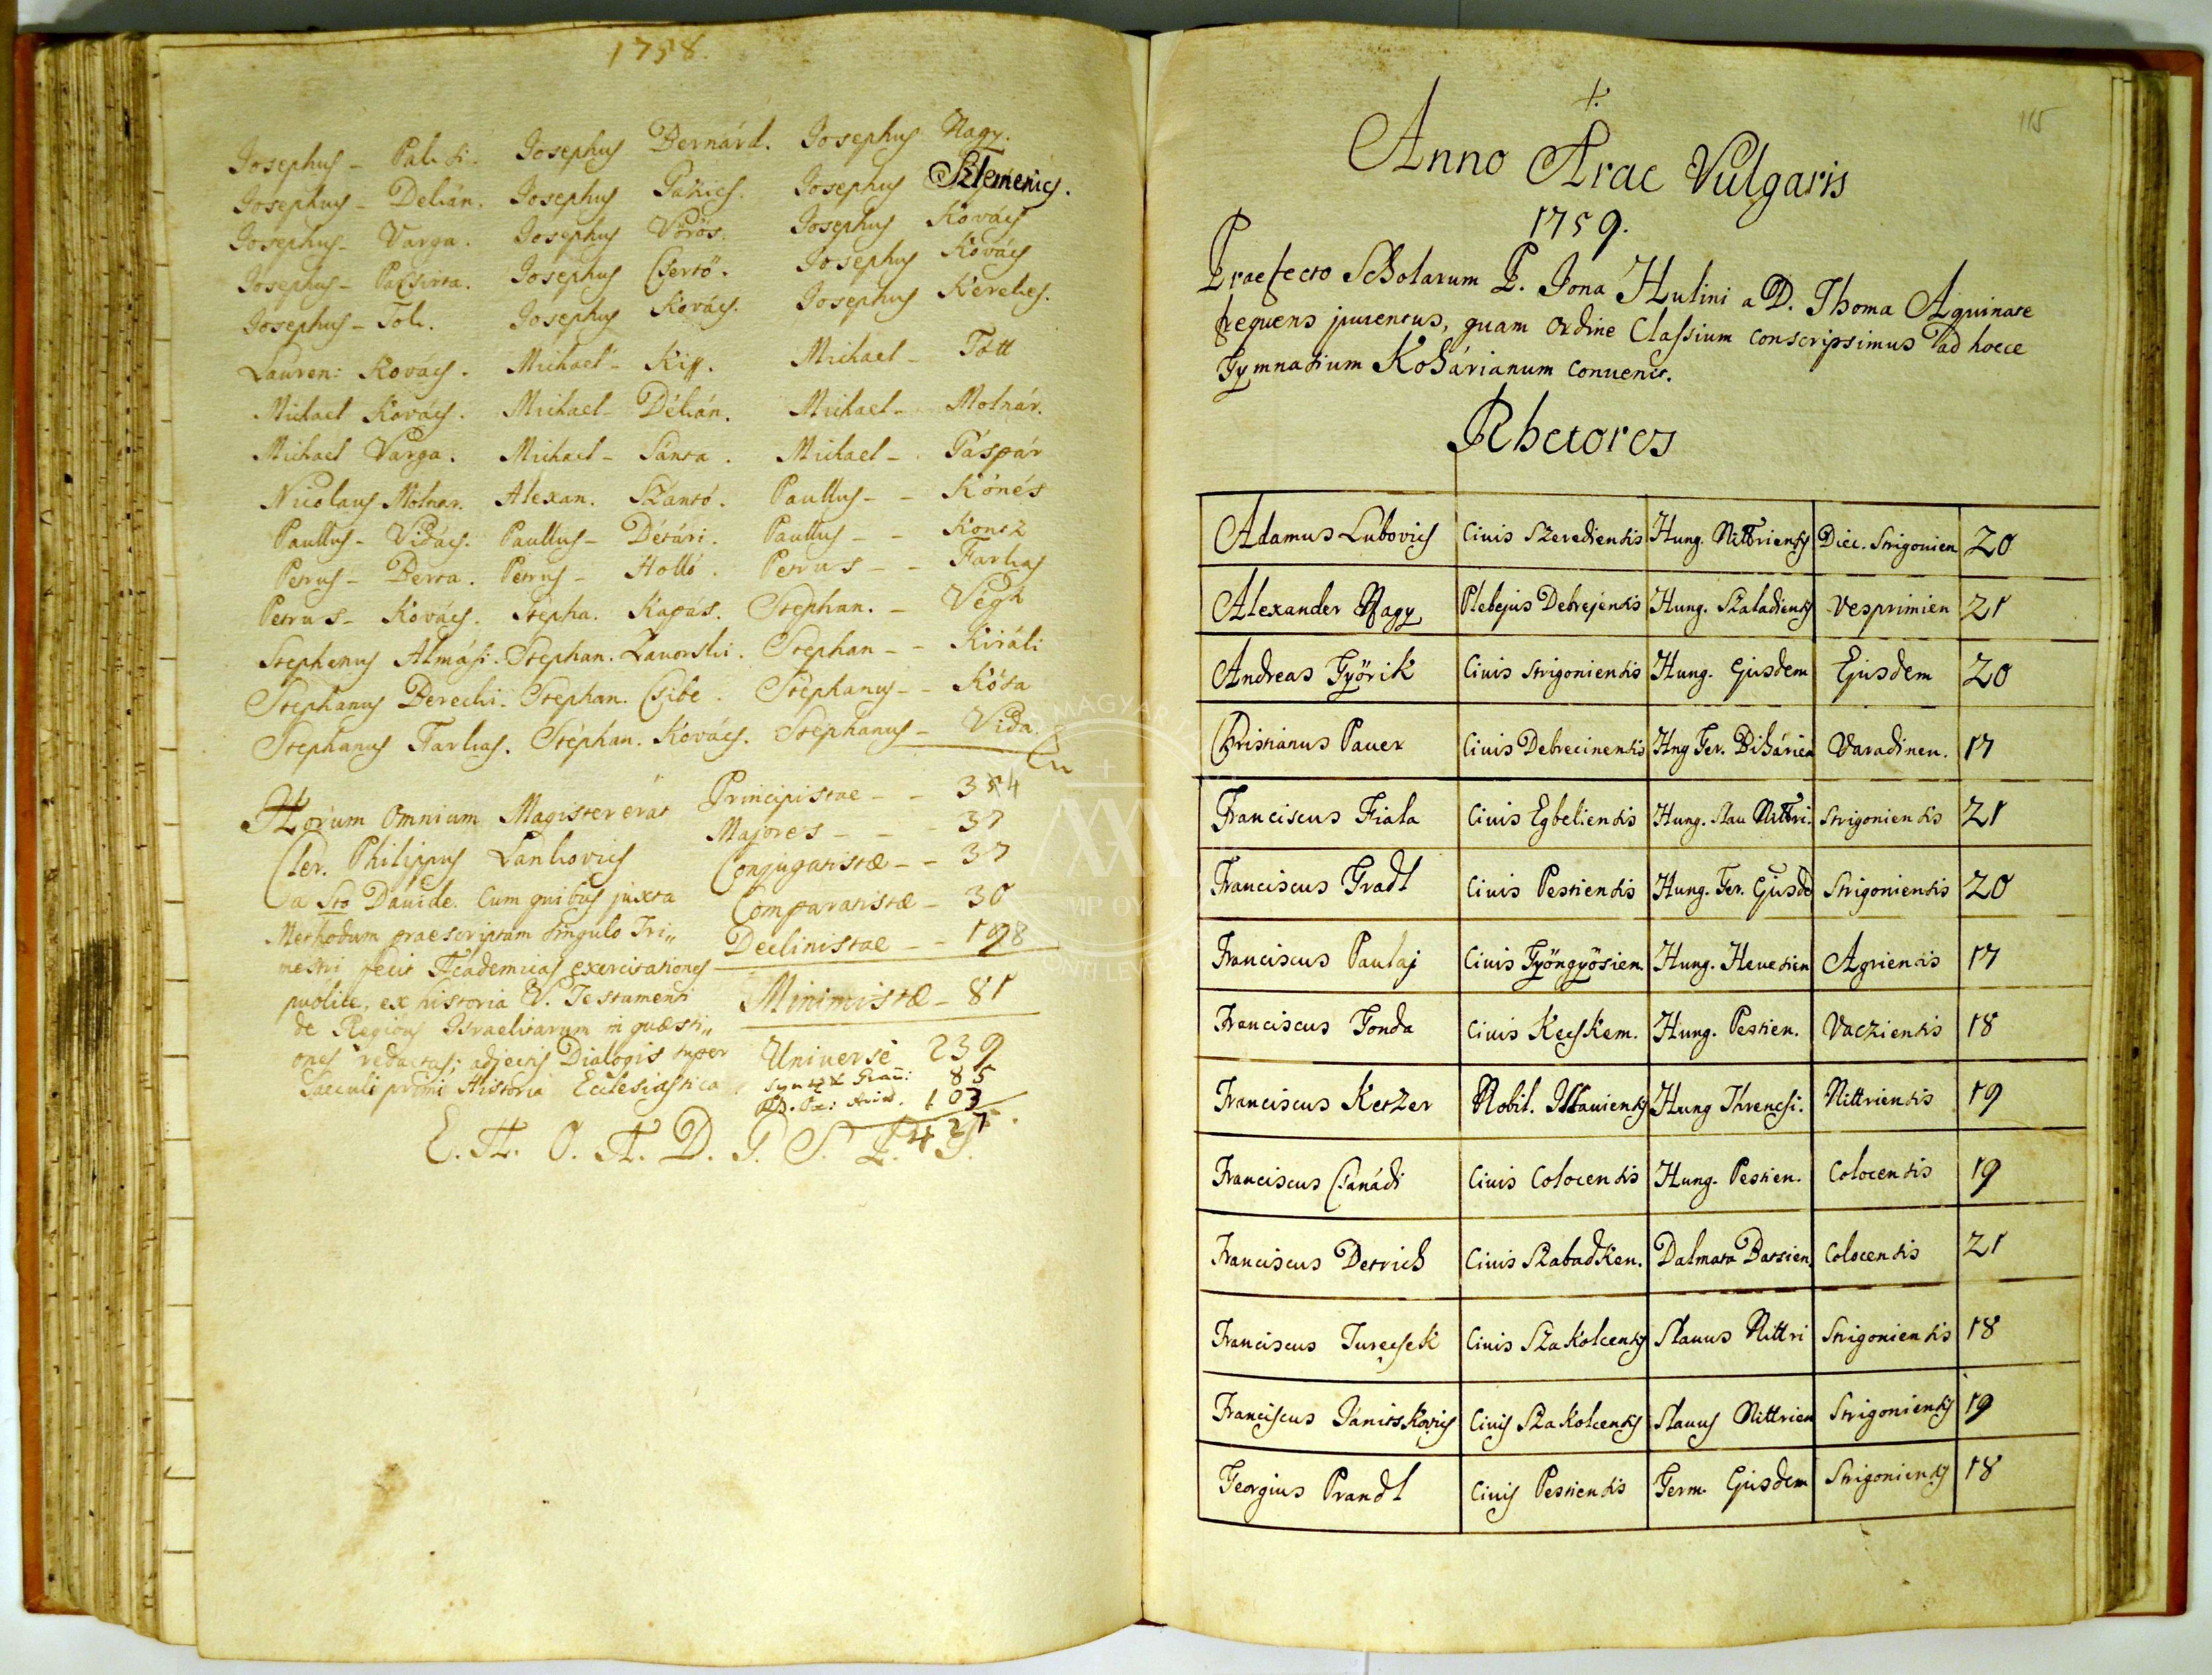 1758.
Josephus - Pal. si. Josephus Bernárd. Josephus Nagy.
Josephus - Delián. Josephus Takics. Josephus Sztemenics.
Josephus - Varga. Josephus Vörös. Josephus Kovács
Josephus - Pacsirta. Josephus Csertö. Josephus Kovács
Josephus - Josephus Kovács. Josephus Kerekes.
Lauren: Kovács. Michael - Kiss. Michael - Tótt
Michael Kovács. Michael - Délián. Michael - Molnár.
Michael Varga. Michael - Sánta. Michael - Gáspár
Nicolaus Molnar. Alexan. Szantó. Paullus - - Kónés
Paullus - Vidács. Paullus - Détári. Paullus - - Koncz
Petrus - Berta. Petrus - Holló. Petrus - - Farkas
Petrus - Kovács. Stepha. Kapás. Stephan. - Végh
Stephanus Almási. Stephan. Lavorski. Stephan - - Királi
Stephanus Derecki. Stephan. Csibe. Stephanus - - Kósa
Stephanus Farkas. Stephan. Kovács. Stephanus - Vida.
Horum Omnium Magister erat
Cler. Philippus Lankovics
a Sto Davide. Cum quibus juxta
Methodum praescriptam singulo Tri„
mestri fecit Academicas exercitationes
publice, ex historia V. Testamenti
de Regibus Israelitarum in quæsti„
ones redactas; adjectis Dialogis super
Saeculi primi Historia Ecclesiastica.
Principistae - - 354
Majores - - - 37
Conjugatistæ - - 37
Comparatistæ - 30
Declinistae - - 198
Minimistæ - 81
Universè 239
Syntax Gram: 85
103
427.
E. A. O. A. D. G. S. P. J.
115
Anno Ærae Vulgaris
1759.
Praefecto Scholarum P. Jona Hulini a D. Thoma Aquinate
frequens juventus, quam ordine Classium conscripsimus ad hocce
Gymnasium Kohárianum convenit.
Rhetores
Adamus Lubovics Civis Szerediensis Hung. Nittriensis Diec. Strigonien 20
Alexander Nagy Plebejus Debrejensis Hung. Szaladiensis Vesprimien 21
Andreas Györik Civis Strigoniensis Hung. Ejusdem Ejusdem 20
Christianus Pauer Civis Debrecinensis Hng Ger. Bihárien Varadinen. 17
Franciscus Fiala Civis Egbeliensis Hung. Slav Nittri. Strigoniensis 21
Franciscus Gradl Civis Pestiensis Hung. Ger. Ejusde Strigoniensis 20
Franciscus Paulaj Civis Gyöngyösien. Hung. Hevesien Agriensis 17
Franciscus Gonda Civis Kecskem. Hung. Pestien. Vacziensis 18
Franciscus Ketzer Nobil. Illaviensis Hung Threncsi. Nittriensis 19
Franciscus Csanádi Civis Colocensis Hung. Pestien. Colocensis 19
Franciscus Petrich Civis Szabadken. Dalmata Batsien. Colocensis 21
Franciscus Turecsek Civis Szakolcensis Slavus Nittri Strigoniensis 18
Franciscus Jánitskovics Civis Szakolcensis Slavus Nittrien Strigoniensis 19
Georgius Prandl Civis Pestiensis Germ. Ejusdem Strigoniensis 18